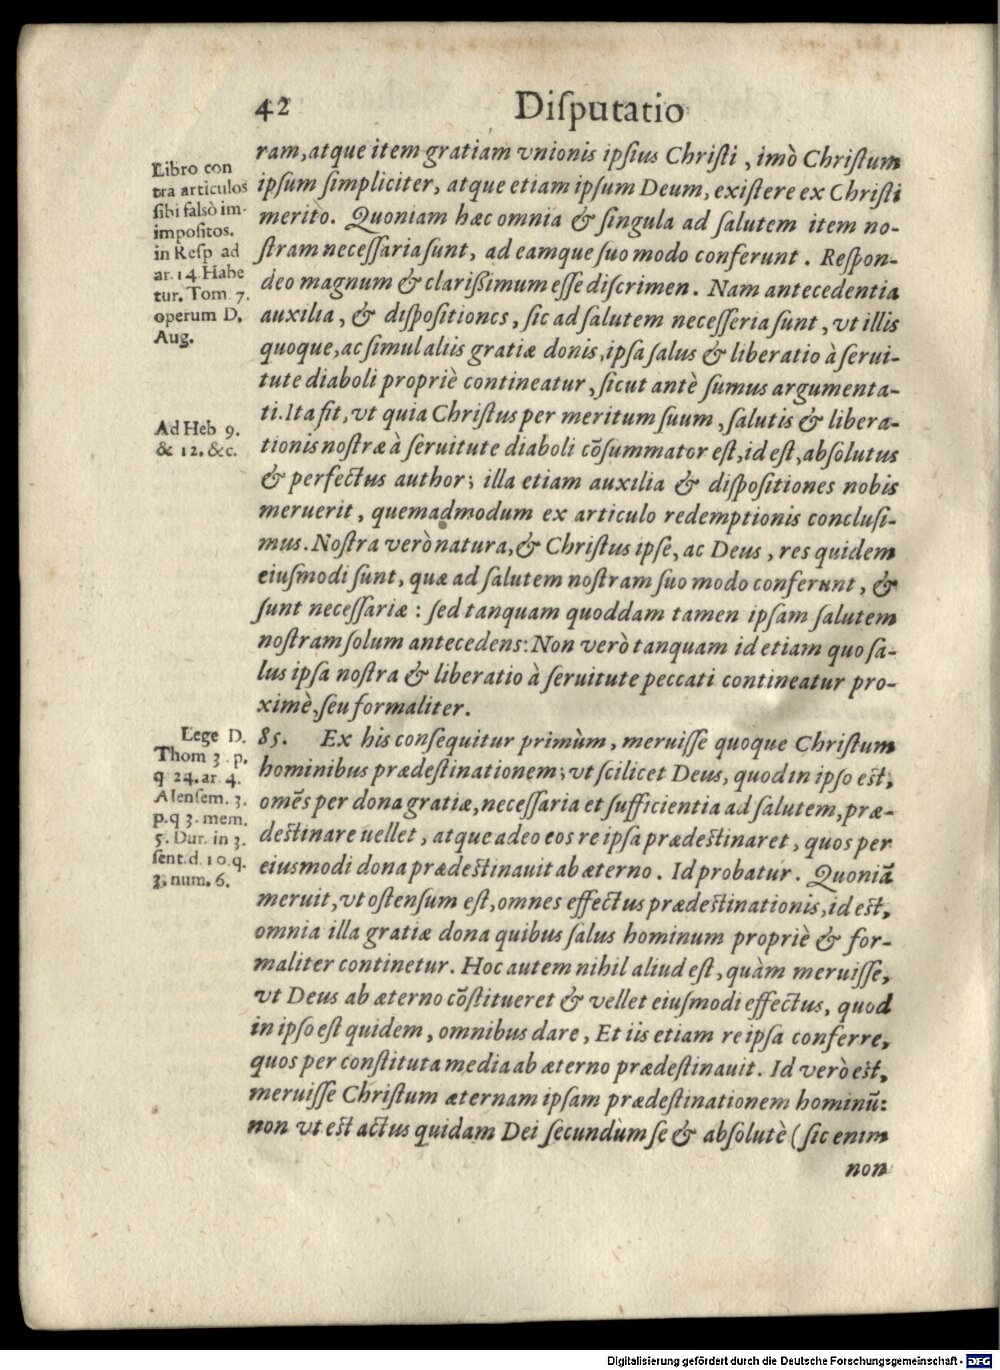 42 Diſputatio
ram, atque item gratiam vnionis ipſius Chriſti, imò Chriſtum
ipſum ſimpliciter, atque etiam ipſum Deum, exiſtere ex Chriſti
merito. Quoniam hæc omnia & ſingula ad ſalutem item no-
ſtram neceſſaria ſunt, ad eamque ſuo modo conferunt. Reſpon-
deo magnum & clarißimum eſſe diſcrimen. Nam antecedentia
auxilia, & diſpoſitiones, ſic ad ſalutem neceſſeria ſunt, vt illis
quoque, ac ſimul aliis gratiæ donis, ipſa ſalus & liberatio à ſerui-
tute diaboli propriè contineatur, ſicut antè ſumus argumenta-
ti. Ita fit, vt quia Chriſtus per meritum ſuum, ſalutis & libera-
tionis noſtræ à ſeruitute diaboli cõſummator eſt, id eſt, abſolutus
& perfectus author; illa etiam auxilia & diſpoſitiones nobis
meruerit, quemadmodum ex articulo redemptionis concluſi-
mus. Noſtra verò natura, & Chriſtus ipſe, ac Deus, res quidem
eiuſmodi ſunt, quæ ad ſalutem noſtram ſuo modo conferunt, &
ſunt neceſſariæ: ſed tanquam quoddam tamen ipſam ſalutem
noſtram ſolum antecedens: Non verò tanquam id etiam quo ſa-
lus ipſa noſtra & liberatio à ſeruitute peccati contineatur pro-
ximè, ſeu formaliter.
85. Ex his conſequitur primùm, meruiſſe quoque Chriſtum
hominibus prædeſtinationem; vt ſcilicet Deus, quod in ipſo eſt,
omẽs per dona gratiæ, neceſſaria et ſufficientia ad ſalutem, præ-
deſtinare uellet, atque adeo eos re ipſa prædeſtinaret, quos per
eiuſmodi dona prædeſtinauit ab æterno. Id probatur. Quoniã
meruit, vt oſtenſum eſt, omnes effectus prædeſtinationis, id eſt,
omnia illa gratiæ dona quibus ſalus hominum propriè & for-
maliter continetur. Hoc autem nihil aliud eſt, quàm meruiſſe,
vt Deus ab æterno cõſtitueret & vellet eiuſmodi effectus, quod
in ipſo eſt quidem, omnibus dare, Et iis etiam re ipſa conferre,
quos per conſtituta media ab æterno prædeſtinauit. Id verò eſt,
meruiſſe Chriſtum æternam ipſam prædeſtinationem hominũ:
non vt eſt actus quidam Dei ſecundùm ſe & abſolutè (ſic enim
non
Libro con
tra articulos
ſibi falsò im-
impoſitos.
in Reſp ad
ar. 14 Habe
tur. Tom 7.
operum D.
Aug.
Ad Heb 9.
& 12. &c.
Lege D.
Thom 3. p.
q 24. ar. 4.
Alenſem. 3.
p. q 3. mem.
5. Dur. in 3.
ſent. d. 10. q.
3. num. 6.
Digitalisierung gefördert durch die Deutsche Forschungsgemeinschaft - DFG